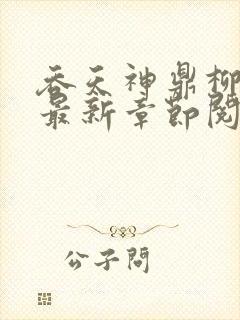 吞天神鼎柳
最新章節閱
公子問